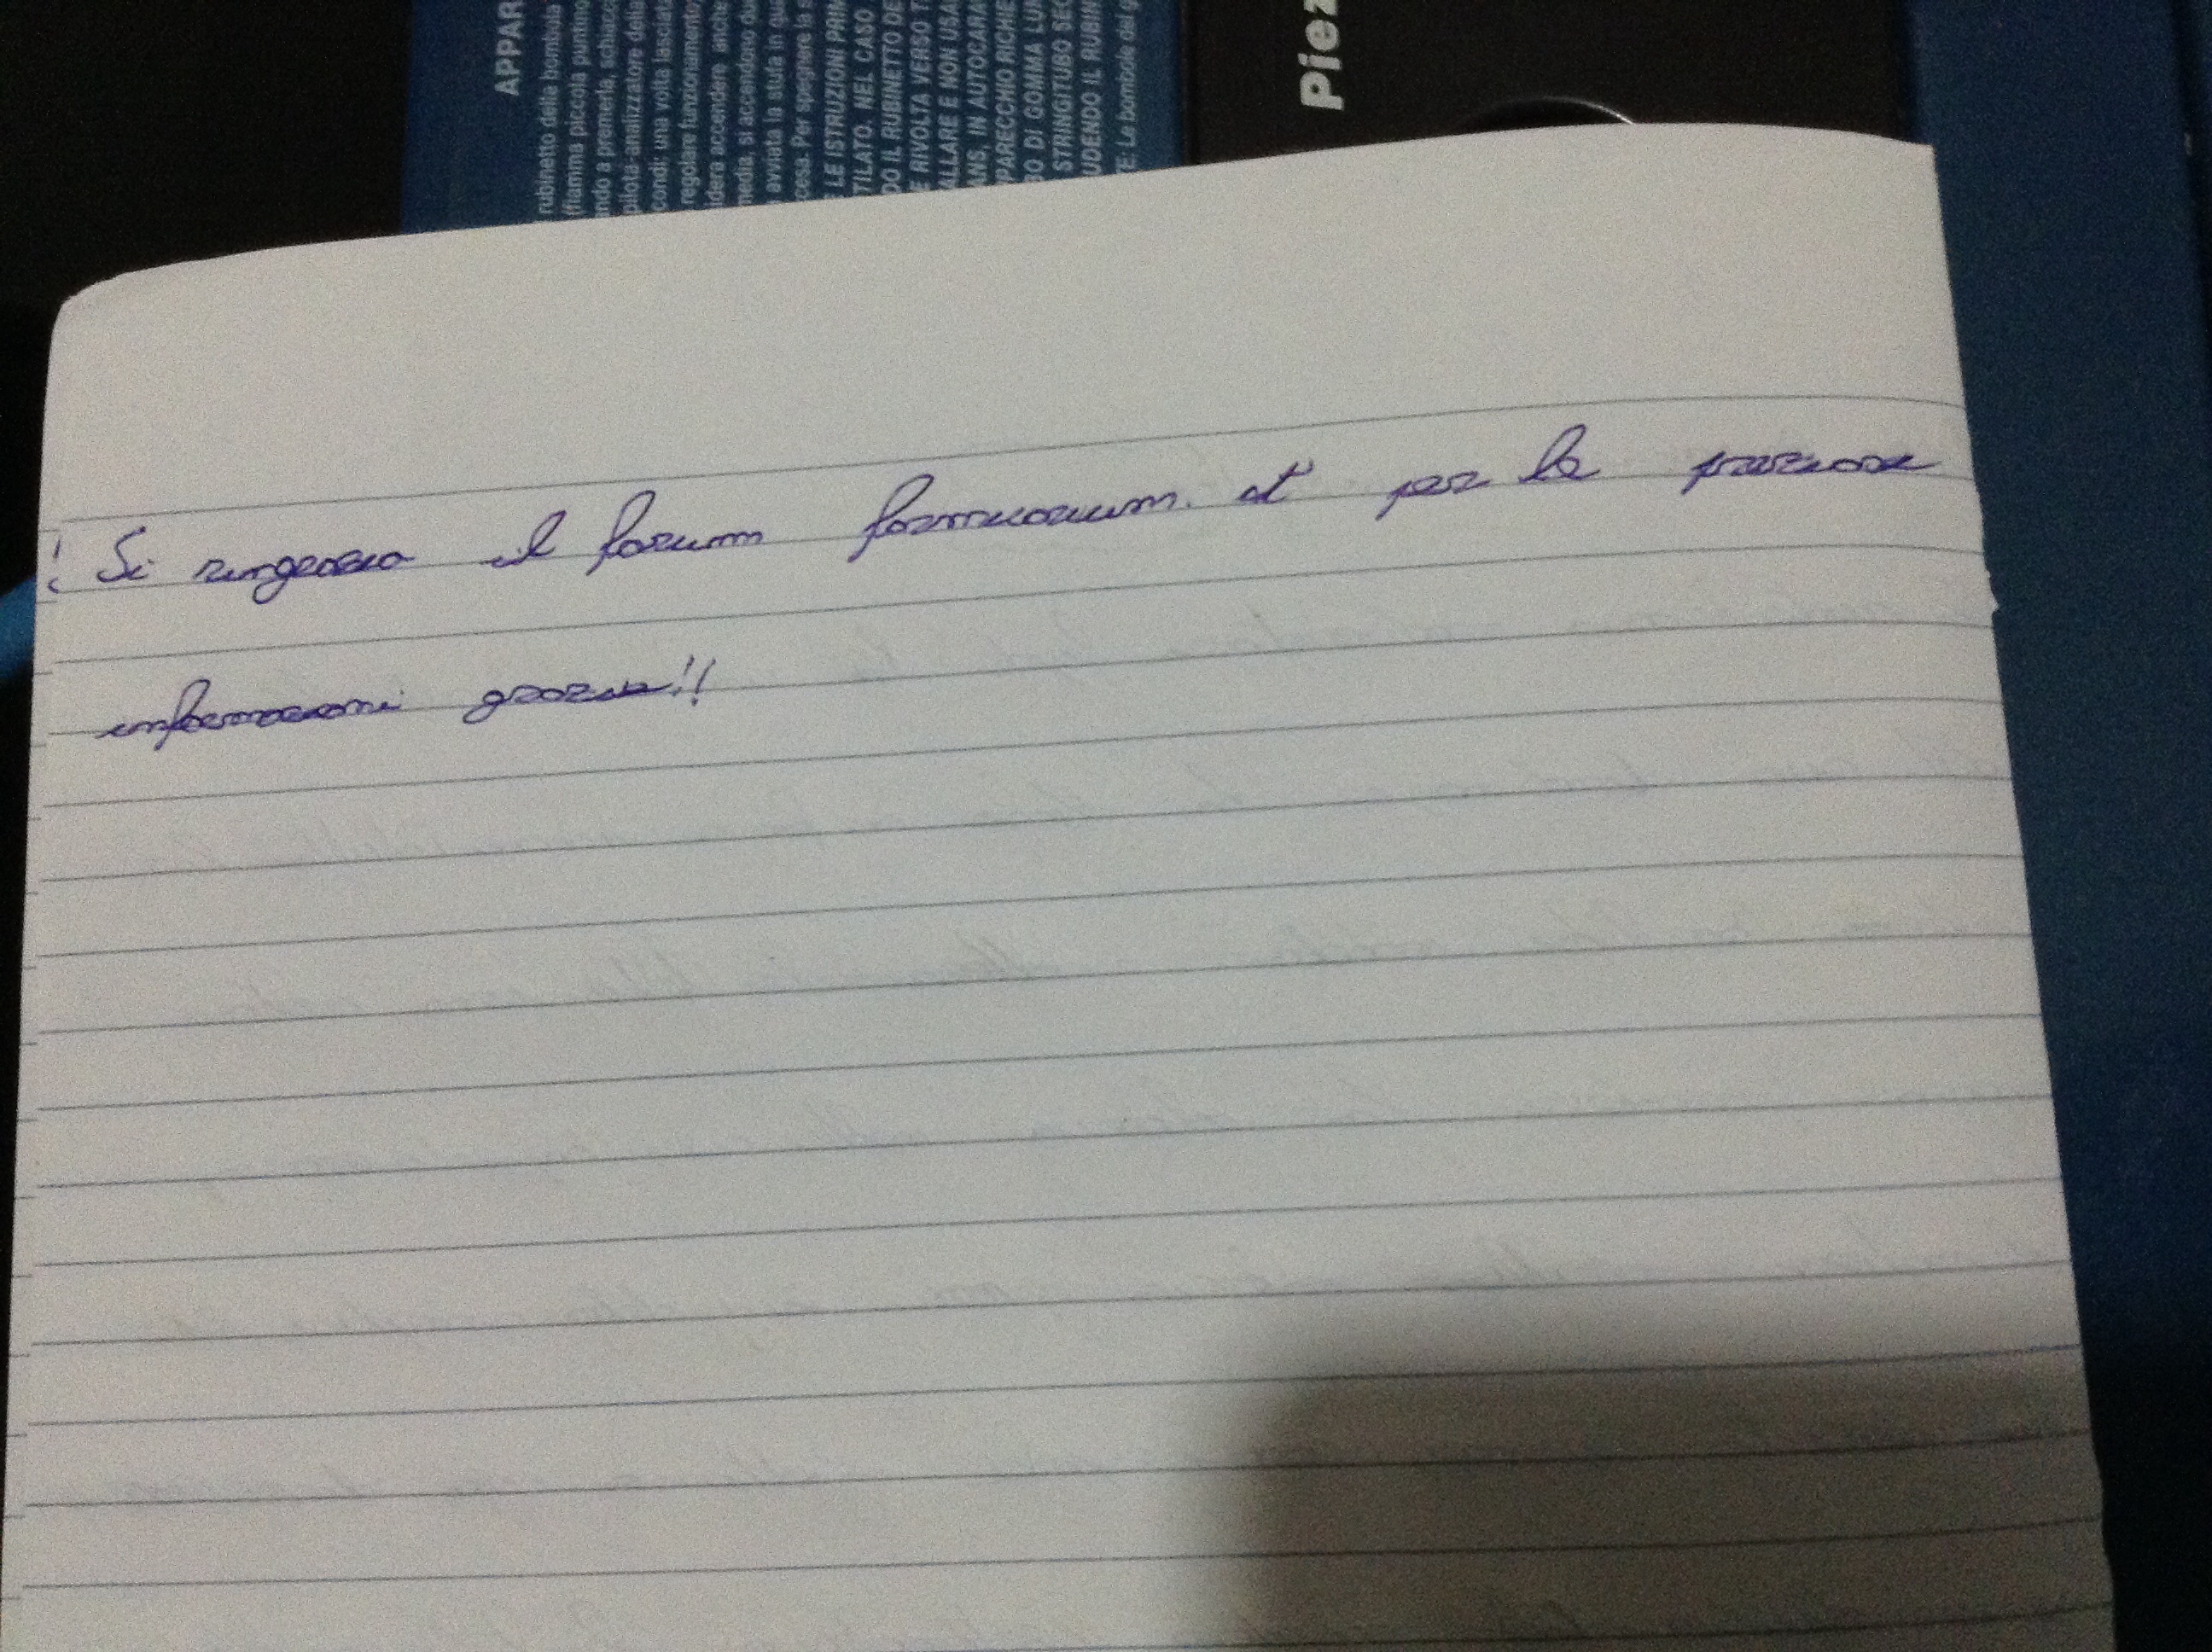 ! Si ringrazia il forum formicarium.it per le preziose
informazioni grazie!!
APPAR
rubinetto della bombola
(fiamma piccola puntino
ando a premerla, schiacc
pilota-analizzatore della
condi: una volta lasciato
regolare funzionamento
idera accendere anche
media, si accendono du
avviata la stufa in qu
ccesa. Per spegnere la s
E LE ISTRUZIONI PRIM
TILATO. NEL CASO
DO IL RUBINETTO DE
E RIVOLTA VERSO T
ALLARE E NON USA
ANS, IN AUTOCARA
PARECCHIO RICHIE
BO DI GOMMA LUN
STRINGITUBO SEC
UDENDO IL RUBIN
TE: Le bombole del g
Piez